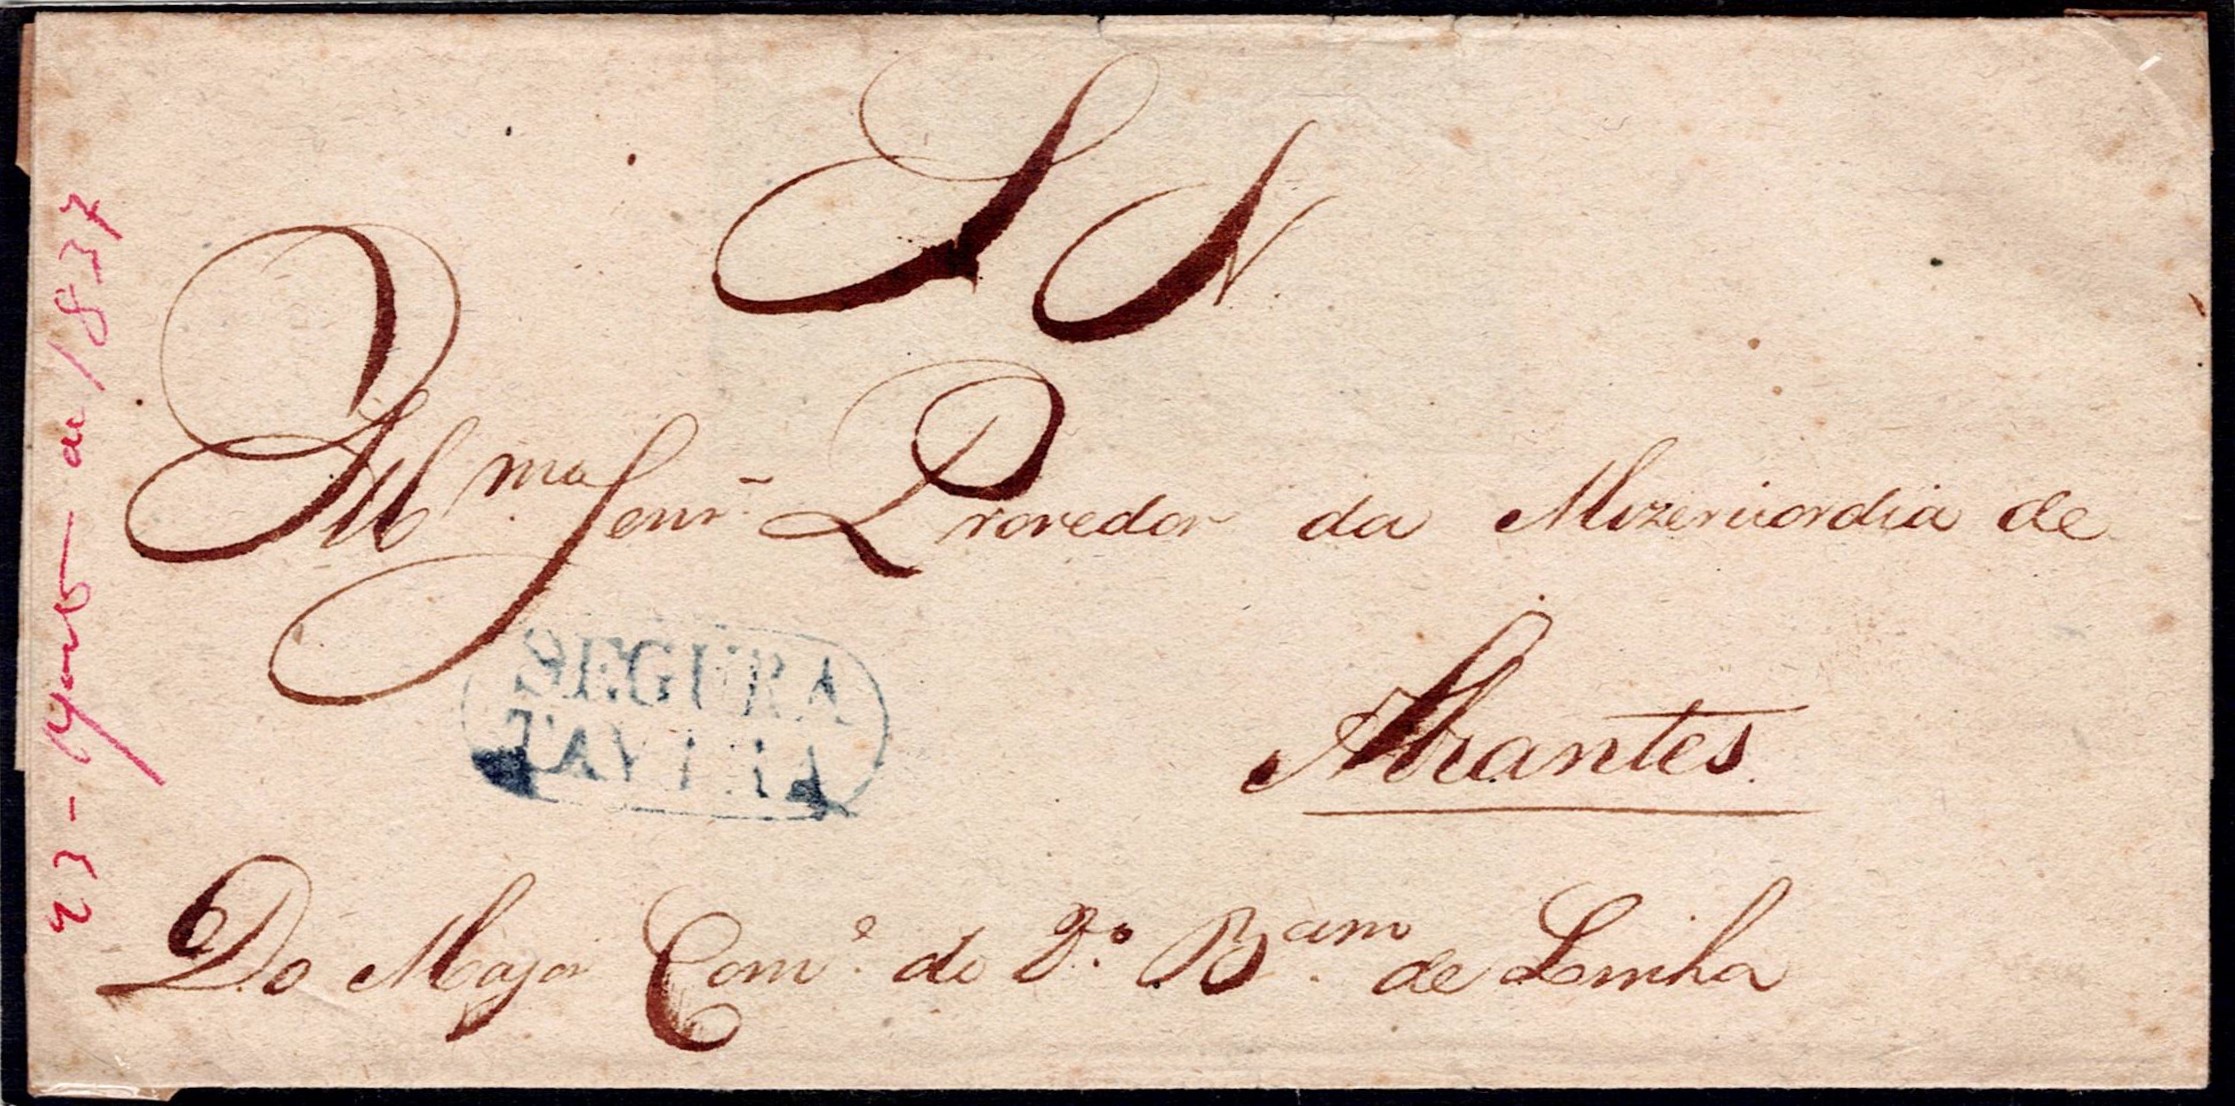 S N
Ill.mo Senr. Provedor da Mizericordia de
Abrantes
SEGURA
TAVIRA
Do Major Com.e do 2.o B.am de Linha
23 - Agosto de 1837